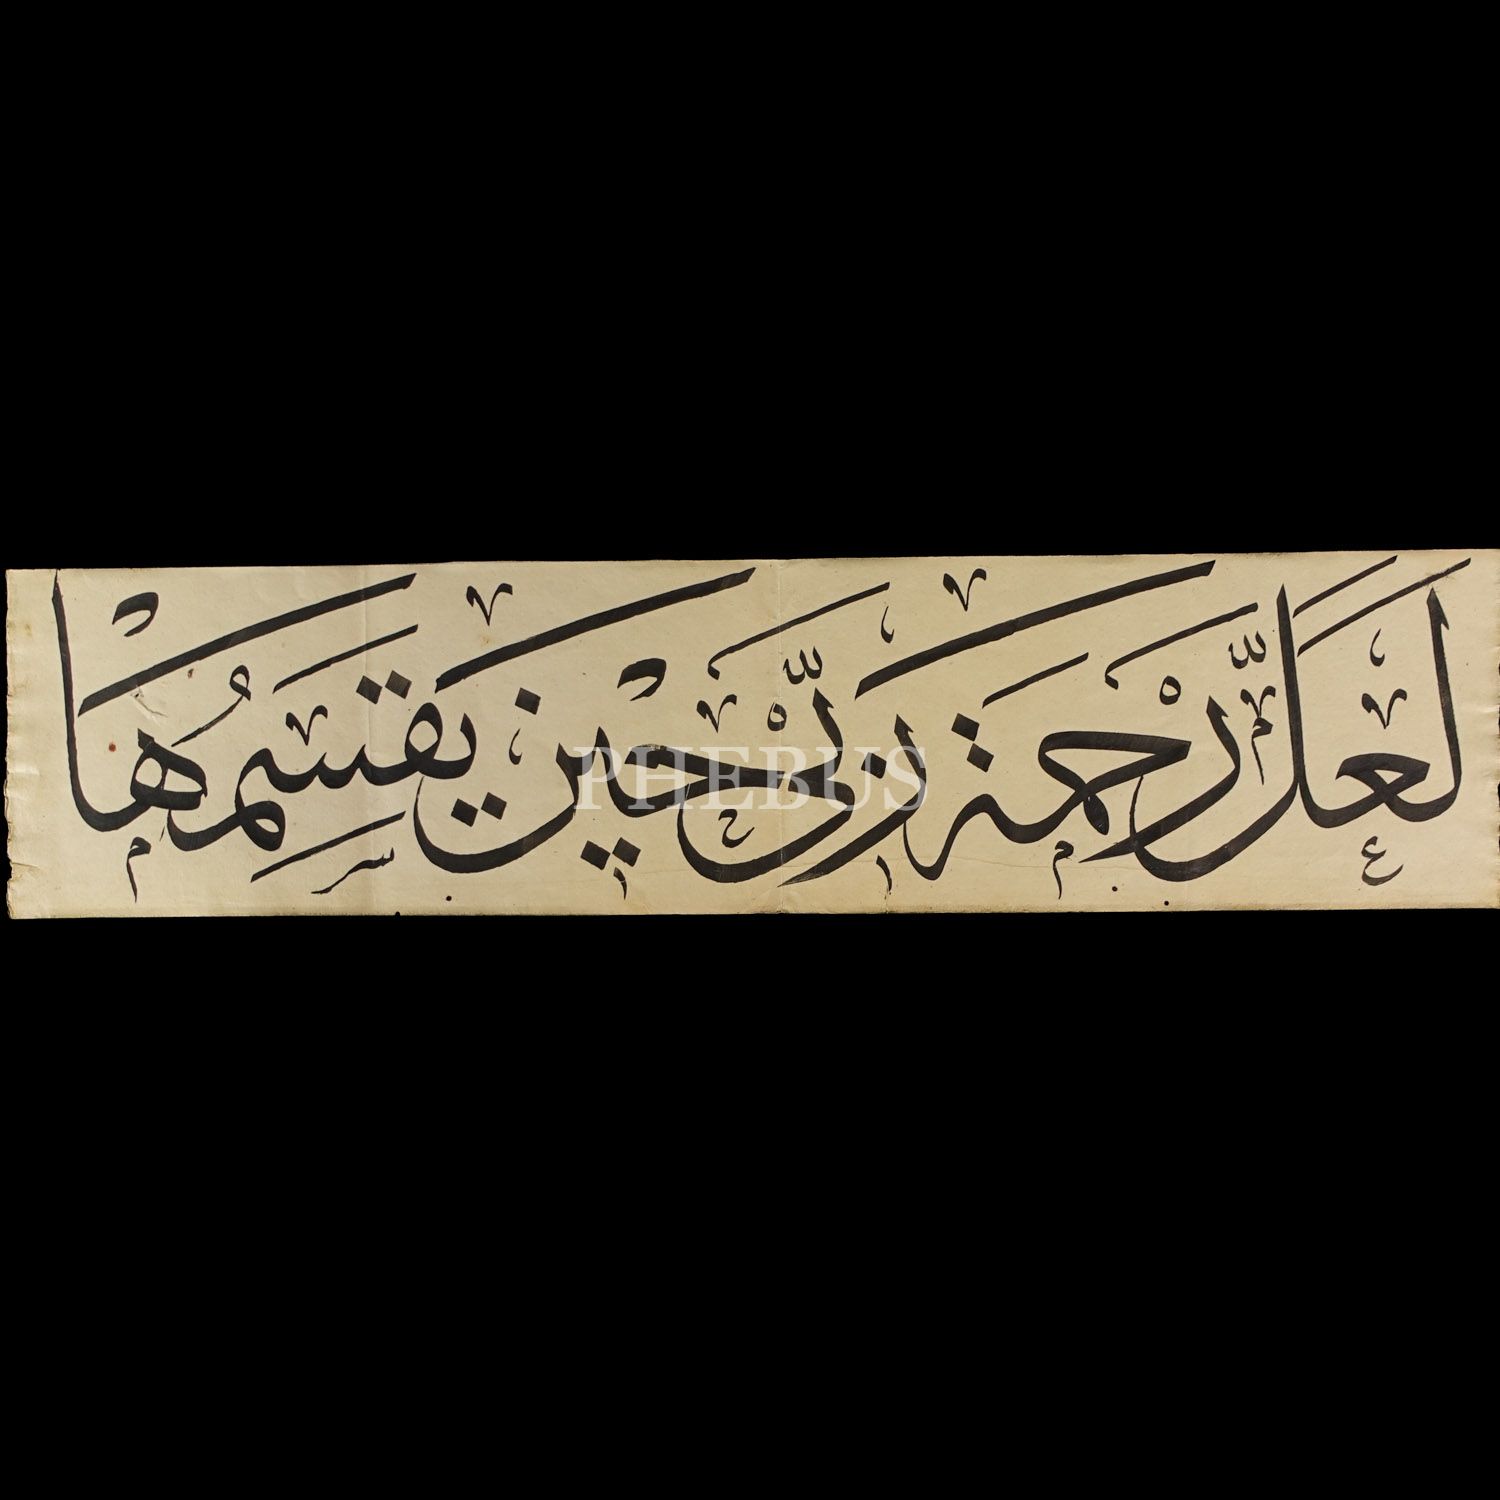 لَعَلَّ رَحْمَةَ رَبِّي حِينَ يَقْسِمُهَا
PHEBUS